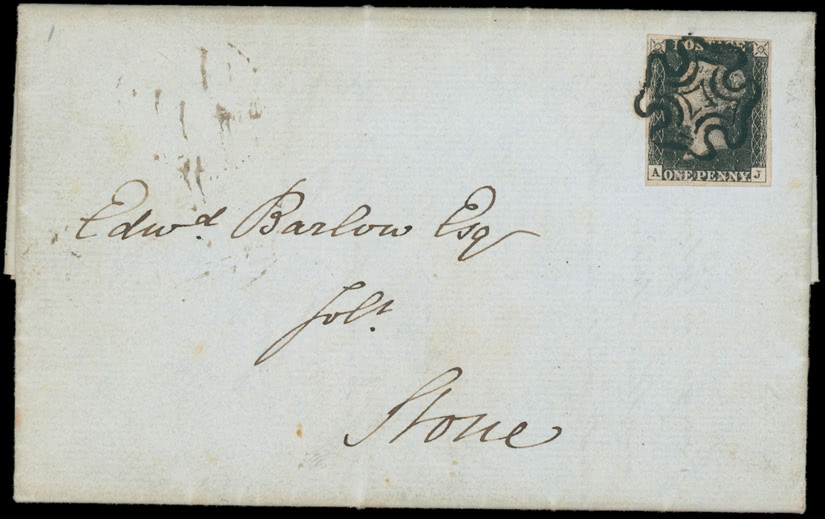 POSTAGE
A ONE PENNY. J
Edwd. Barlow Esq
Solr.
Stone